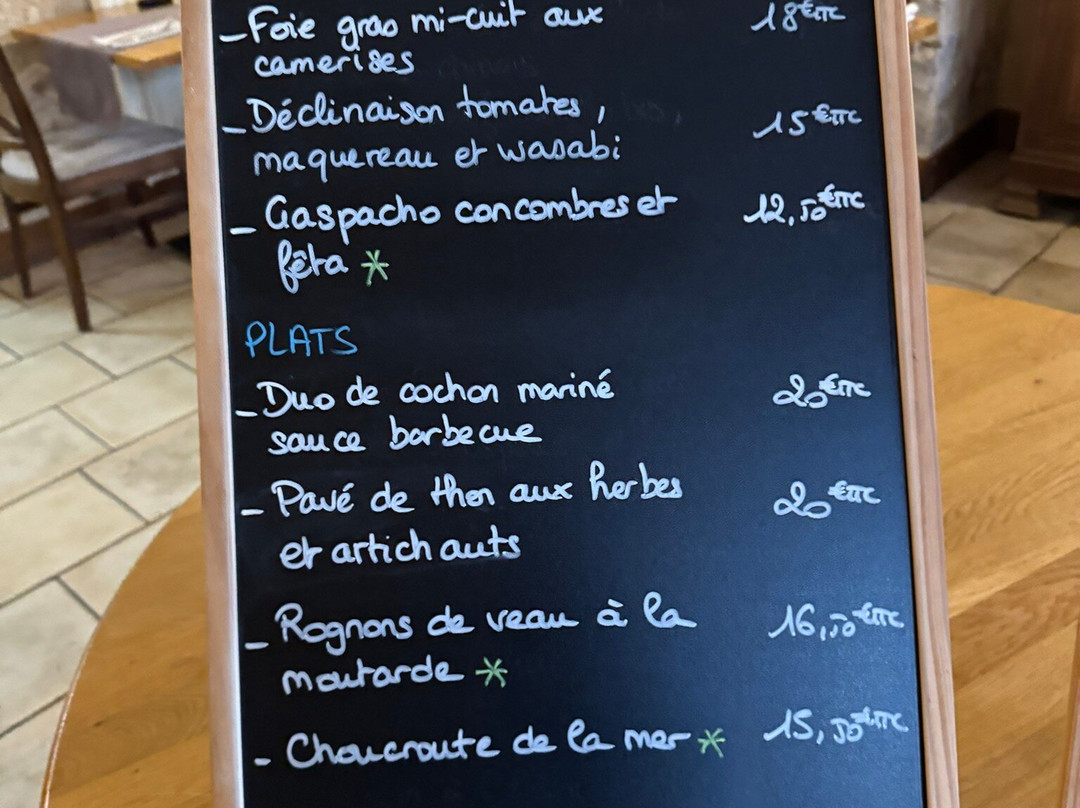 - Foie gras mi-cuit aux 18€TTC
camerises
- Déclinaison tomates, 15€TTC
maquereau et wasabi
- Gaspacho concombres et 12,50€TTC
fêta *
PLATS
- Duo de cochon mariné 20€TTC
sauce barbecue
- Pavé de thon aux herbes 20€TTC
et artichauts
- Rognons de veau à la 16,50€TTC
moutarde *
- Choucroute de la mer * 15,50€TTC